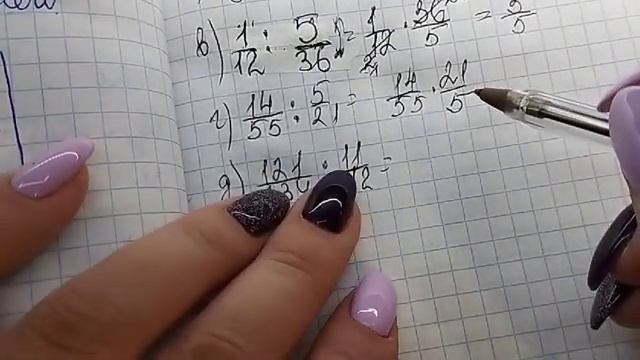 в) 1/12 : 5/36 = 1/12 · 36/5 = 3/5
г) 14/55 : 5/21 = 14/55 · 21/5
д) 121 : 11 =